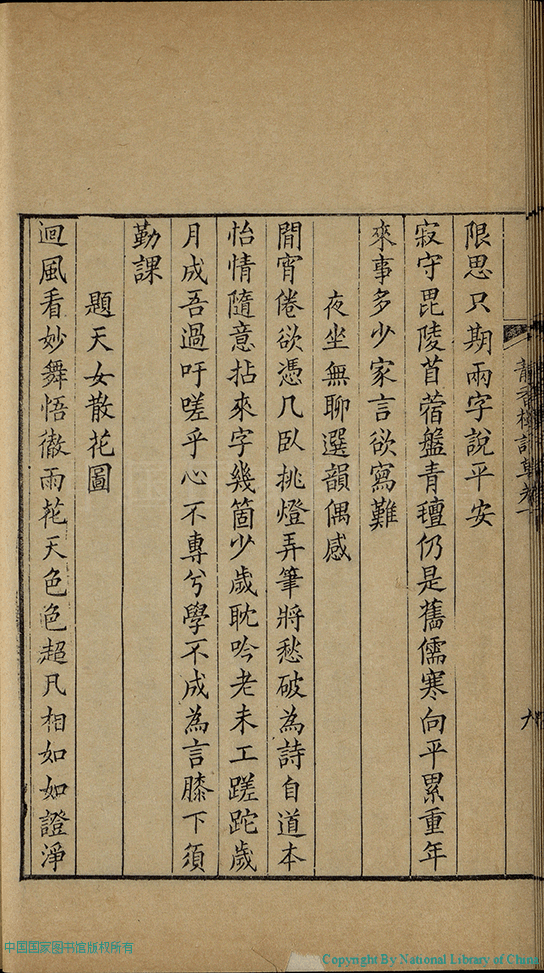 限思只期兩字說平安
寂守毘陵苜蓿盤青氊仍是舊儒寒向平累重年
來事多少家言欲寫難
夜坐無聊選韻偶感
閒宵倦欲憑几臥挑燈弄筆將愁破為詩自道本
怡情隨意拈來字幾箇少歲耽吟老未工蹉跎歲
月成吾過吁嗟乎心不專兮學不成為言膝下須
勤課
題天女散花圖
迴風看妙舞悟徹雨花天色色超凡相如如證淨
中国国家图书馆版权所有
Copyright By National Library of China